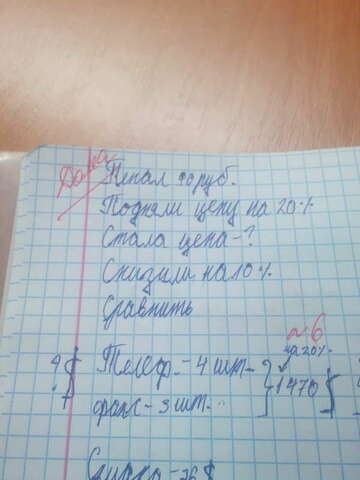 Дано
Пенал 90 руб.
Подняли цену на 20%
Стала цена-?
Снизили на 10%
Сравнить
№6
на 20%
Телеф.- 4 шт.- } 1470
факс- 3 шт.